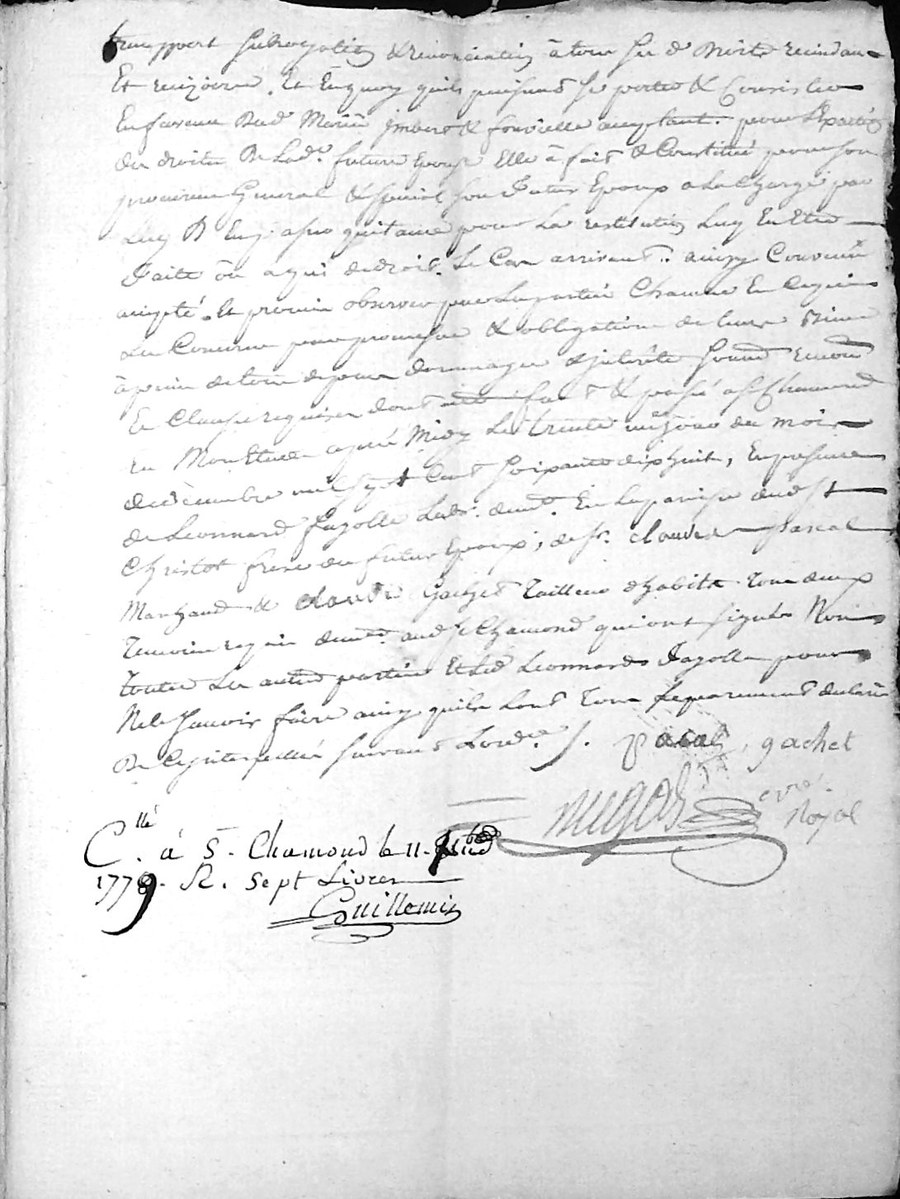 transport subrogation & renonciation à tous
Et rescisoire. Et En quoy quils puissent se porter & Consister
En faveur Dud. Mariés acceptant. pour
des droits De Lad. future Epouse Elle à fait & Constitué pour son
procureur General & special son futur Epoux a La charge par
Luy D En passer quitance pour La restitution Luy En Etre
faite ou a qui de droit. Le Cas arrivant. ainsy Convenu
accepté. Et promis observer par Les parties Chacune En Ce qui
Les Concerne par promesse & obligation de leurs Biens
à peine de tous depens dommages & interets
Et Clauses requises dont acte fait & passé a St Chamond
En Mon Etude après Midy Le trente jour du mois
de decembre mil sept Cent soixante dix huit, En presence
de Leonnard fayolle Lab. demt. En La paroisse dud St
Christot frere du futur Epoux, de Sr. claude pascal
Marchand & claude gachet Tailleur d'habits Tous deux
Temoins requis demts. aud St Chamond qui ont signés Non
Toutes Les autres parties Et Led Leonnard fayolle pour
Ne Sçavoir faire ainsy quils L'ont Tous separement declaré
De Ce interpellés suivant L'ord.ce /. pascal, gachet
nugas
Royal
C.llé à St Chamond le 11.
1779. R. Sept Livres
Guillemin